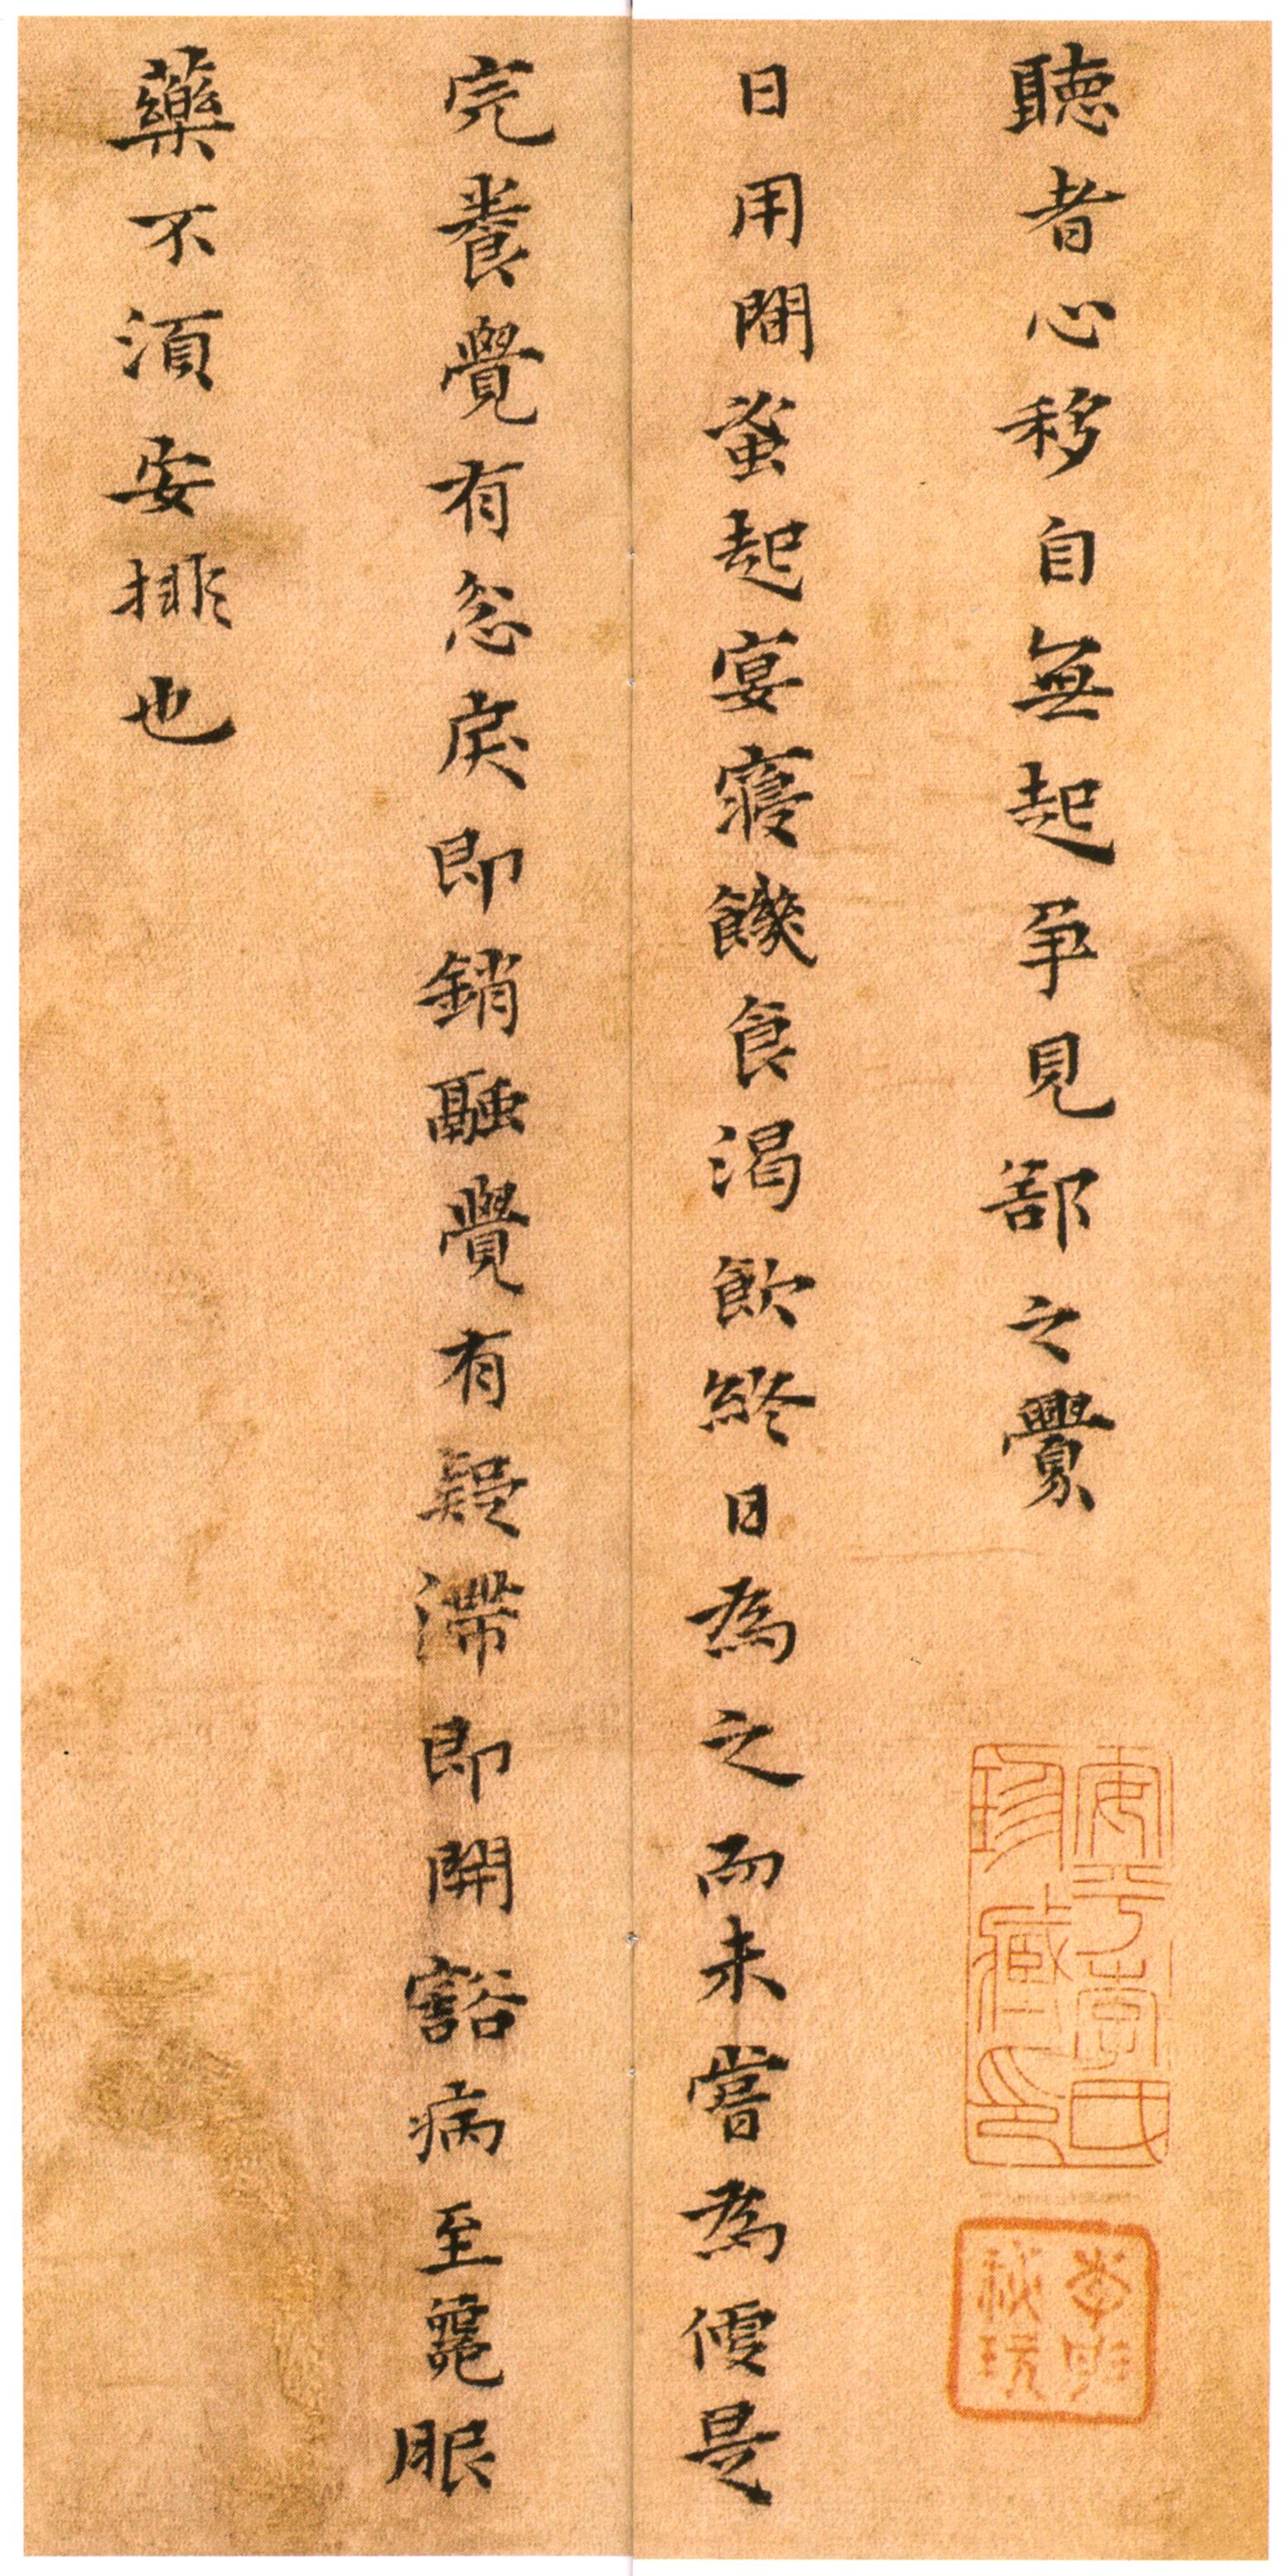 聽者心移自無起爭見鄙之釁
日用間蚤起宴寢饑食渴飲終日為之而未嘗為便是
完養覺有忿戾即銷融覺有疑滯即開豁病至服
藥不須安排也
安平李氏
珍藏印
李
秘玩